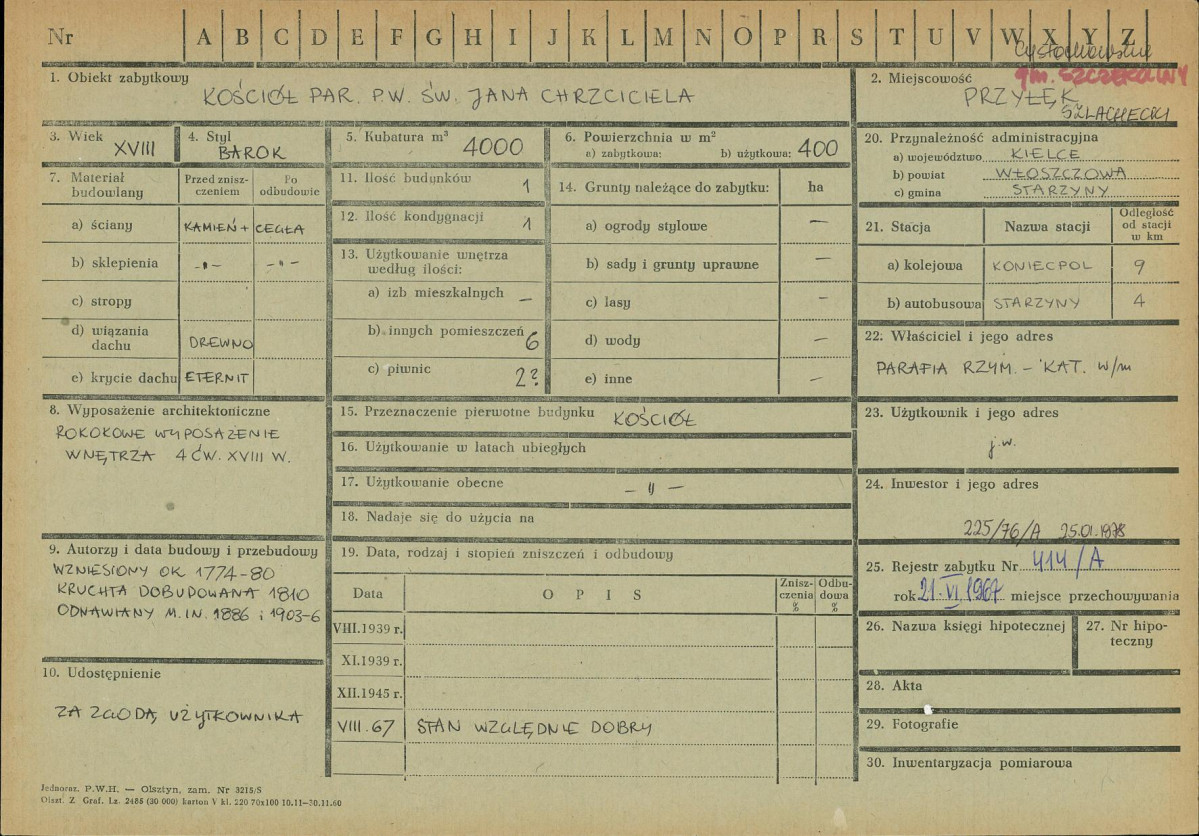 Nr A B C D E F G H I J K L M N O P R S T U V W X Y Z
gm. SZCZEKOCINY
1. Obiekt zabytkowy
KOŚCIÓŁ PAR. P.W. ŚW. JANA CHRZCICIELA
2. Miejscowość
PRZYŁĘK
SZLACHECKI
3. Wiek
XVIII
4. Styl
BAROK
5. Kubatura m³
4000
6. Powierzchnia w m²
a) zabytkowa: b) użytkowa: 400
7. Materiał budowlany
Przed zniszczeniem
Po odbudowie
a) ściany KAMIEŃ + CEGŁA
b) sklepienia -„- -„-
c) stropy
d) wiązania dachu DREWNO
e) krycie dachu ETERNIT
8. Wyposażenie architektoniczne
ROKOKOWE WYPOSAŻENIE
WNĘTRZA 4 ĆW. XVIII W.
9. Autorzy i data budowy i przebudowy
WZNIESIONY OK 1774-80
KRUCHTA DOBUDOWANA 1810
ODNAWIANY M.IN. 1886 i 1903-6
10. Udostępnienie
ZA ZGODĄ UŻYTKOWNIKA
11. Ilość budynków 1
12. Ilość kondygnacji 1
13. Użytkowanie wnętrza
według ilości:
a) izb mieszkalnych –
b) innych pomieszczeń 6
c) piwnic 2?
14. Grunty należące do zabytku: ha
a) ogrody stylowe –
b) sady i grunty uprawne –
c) lasy –
d) wody –
e) inne –
15. Przeznaczenie pierwotne budynku KOŚCIÓŁ
16. Użytkowanie w latach ubiegłych
17. Użytkowanie obecne – „ –
18. Nadaje się do użycia na
19. Data, rodzaj i stopień zniszczeń i odbudowy
Data O P I S Zniszczenia % Odbudowa %
VIII.1939 r.
XI.1939 r.
XII.1945 r.
VIII.67 STAN WZGLĘDNIE DOBRY
20. Przynależność administracyjna
a) województwo KIELCE
b) powiat WŁOSZCZOWA
c) gmina STARZYNY
21. Stacja Nazwa stacji Odległość od stacji w km
a) kolejowa KONIECPOL 9
b) autobusowa STARZYNY 4
22. Właściciel i jego adres
PARAFIA RZYM. – KAT. w/m
23. Użytkownik i jego adres
j.w.
24. Inwestor i jego adres
225/76/A 25.01.1978
25. Rejestr zabytku Nr 414/A
rok 21.VI.1967 miejsce przechowywania
26. Nazwa księgi hipotecznej
27. Nr hipoteczny
28. Akta
29. Fotografie
30. Inwentaryzacja pomiarowa
Jednoraz. P.W.H. — Olsztyn, zam. Nr 3215/S
Olszt. Z. Graf. Lz. 2485 (30 000) karton V kl. 220 70x100 10.11—30.11.60